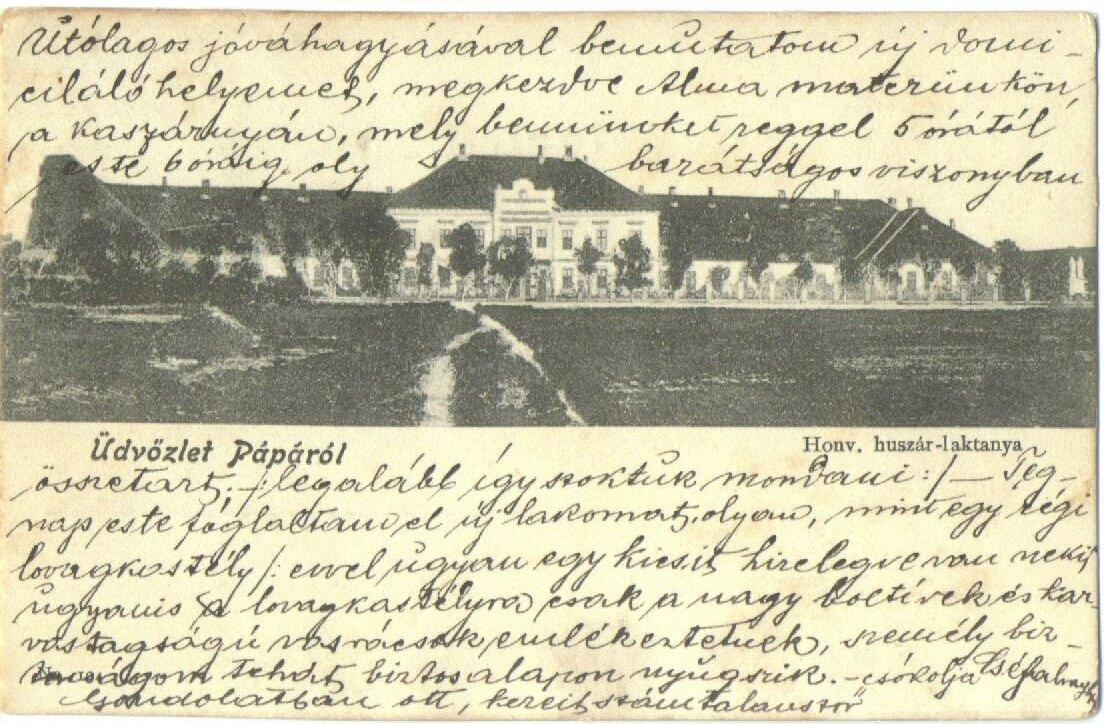 Utólagos jóváhagyásával bemutatom új domi-
ciláló helyemet, megkezdve Alma materünkön,
a kaszárnyán, mely bennünket reggel 5 órától
este 6 óráig oly barátságos viszonyban
Üdvözlet Pápáról
Honv. huszár-laktanya
összetart. /: legalább így szoktuk mondani :/ — Teg-
nap este foglaltam el új lakomat, olyan, mint egy régi
lovagkastély /: evvel ugyan egy kicsit hizelegve van neki,
ugyanis a lovagkastélyra csak a nagy boltívek és kar-
vastagságú vasrácsok emlékeztetnek, személy biz-
tonságom tehát biztos alapon nyúgszik. - csókolja
Gondolatban ott, kezeit számtalanszor